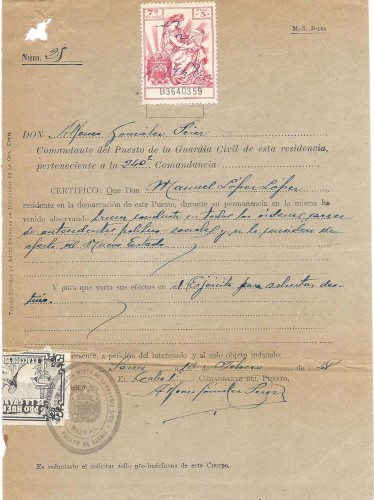 Mod. B-111
Núm. 25
7ª
5ª
D3640359
DON Alfonso Gonzalez Pérez
Comandante del Puesto de la Guardia Civil de esta residencia,
perteneciente a la 240ª Comandancia
CERTIFICO: Que Don Manuel López López
residente en la demarcación de este Puesto, durante su permanencia en la misma ha
venido observando buena conducta en todos los órdenes, carece
de antecedentes político sociales y se le considera
afecto al Nuevo Estado
Y para que surta sus efectos en el Ejército para solicitar des-
tino.
presente, a petición del interesado y al solo objeto indicado.
de Febrero de 19
El Cabo 1º COMANDANTE DEL PUESTO,
Alfonso Gonzalez Perez
RURAL
PRO HUER
DE LA GUAR
Es voluntario el solicitar sello pro-huérfanos de este Cuerpo.